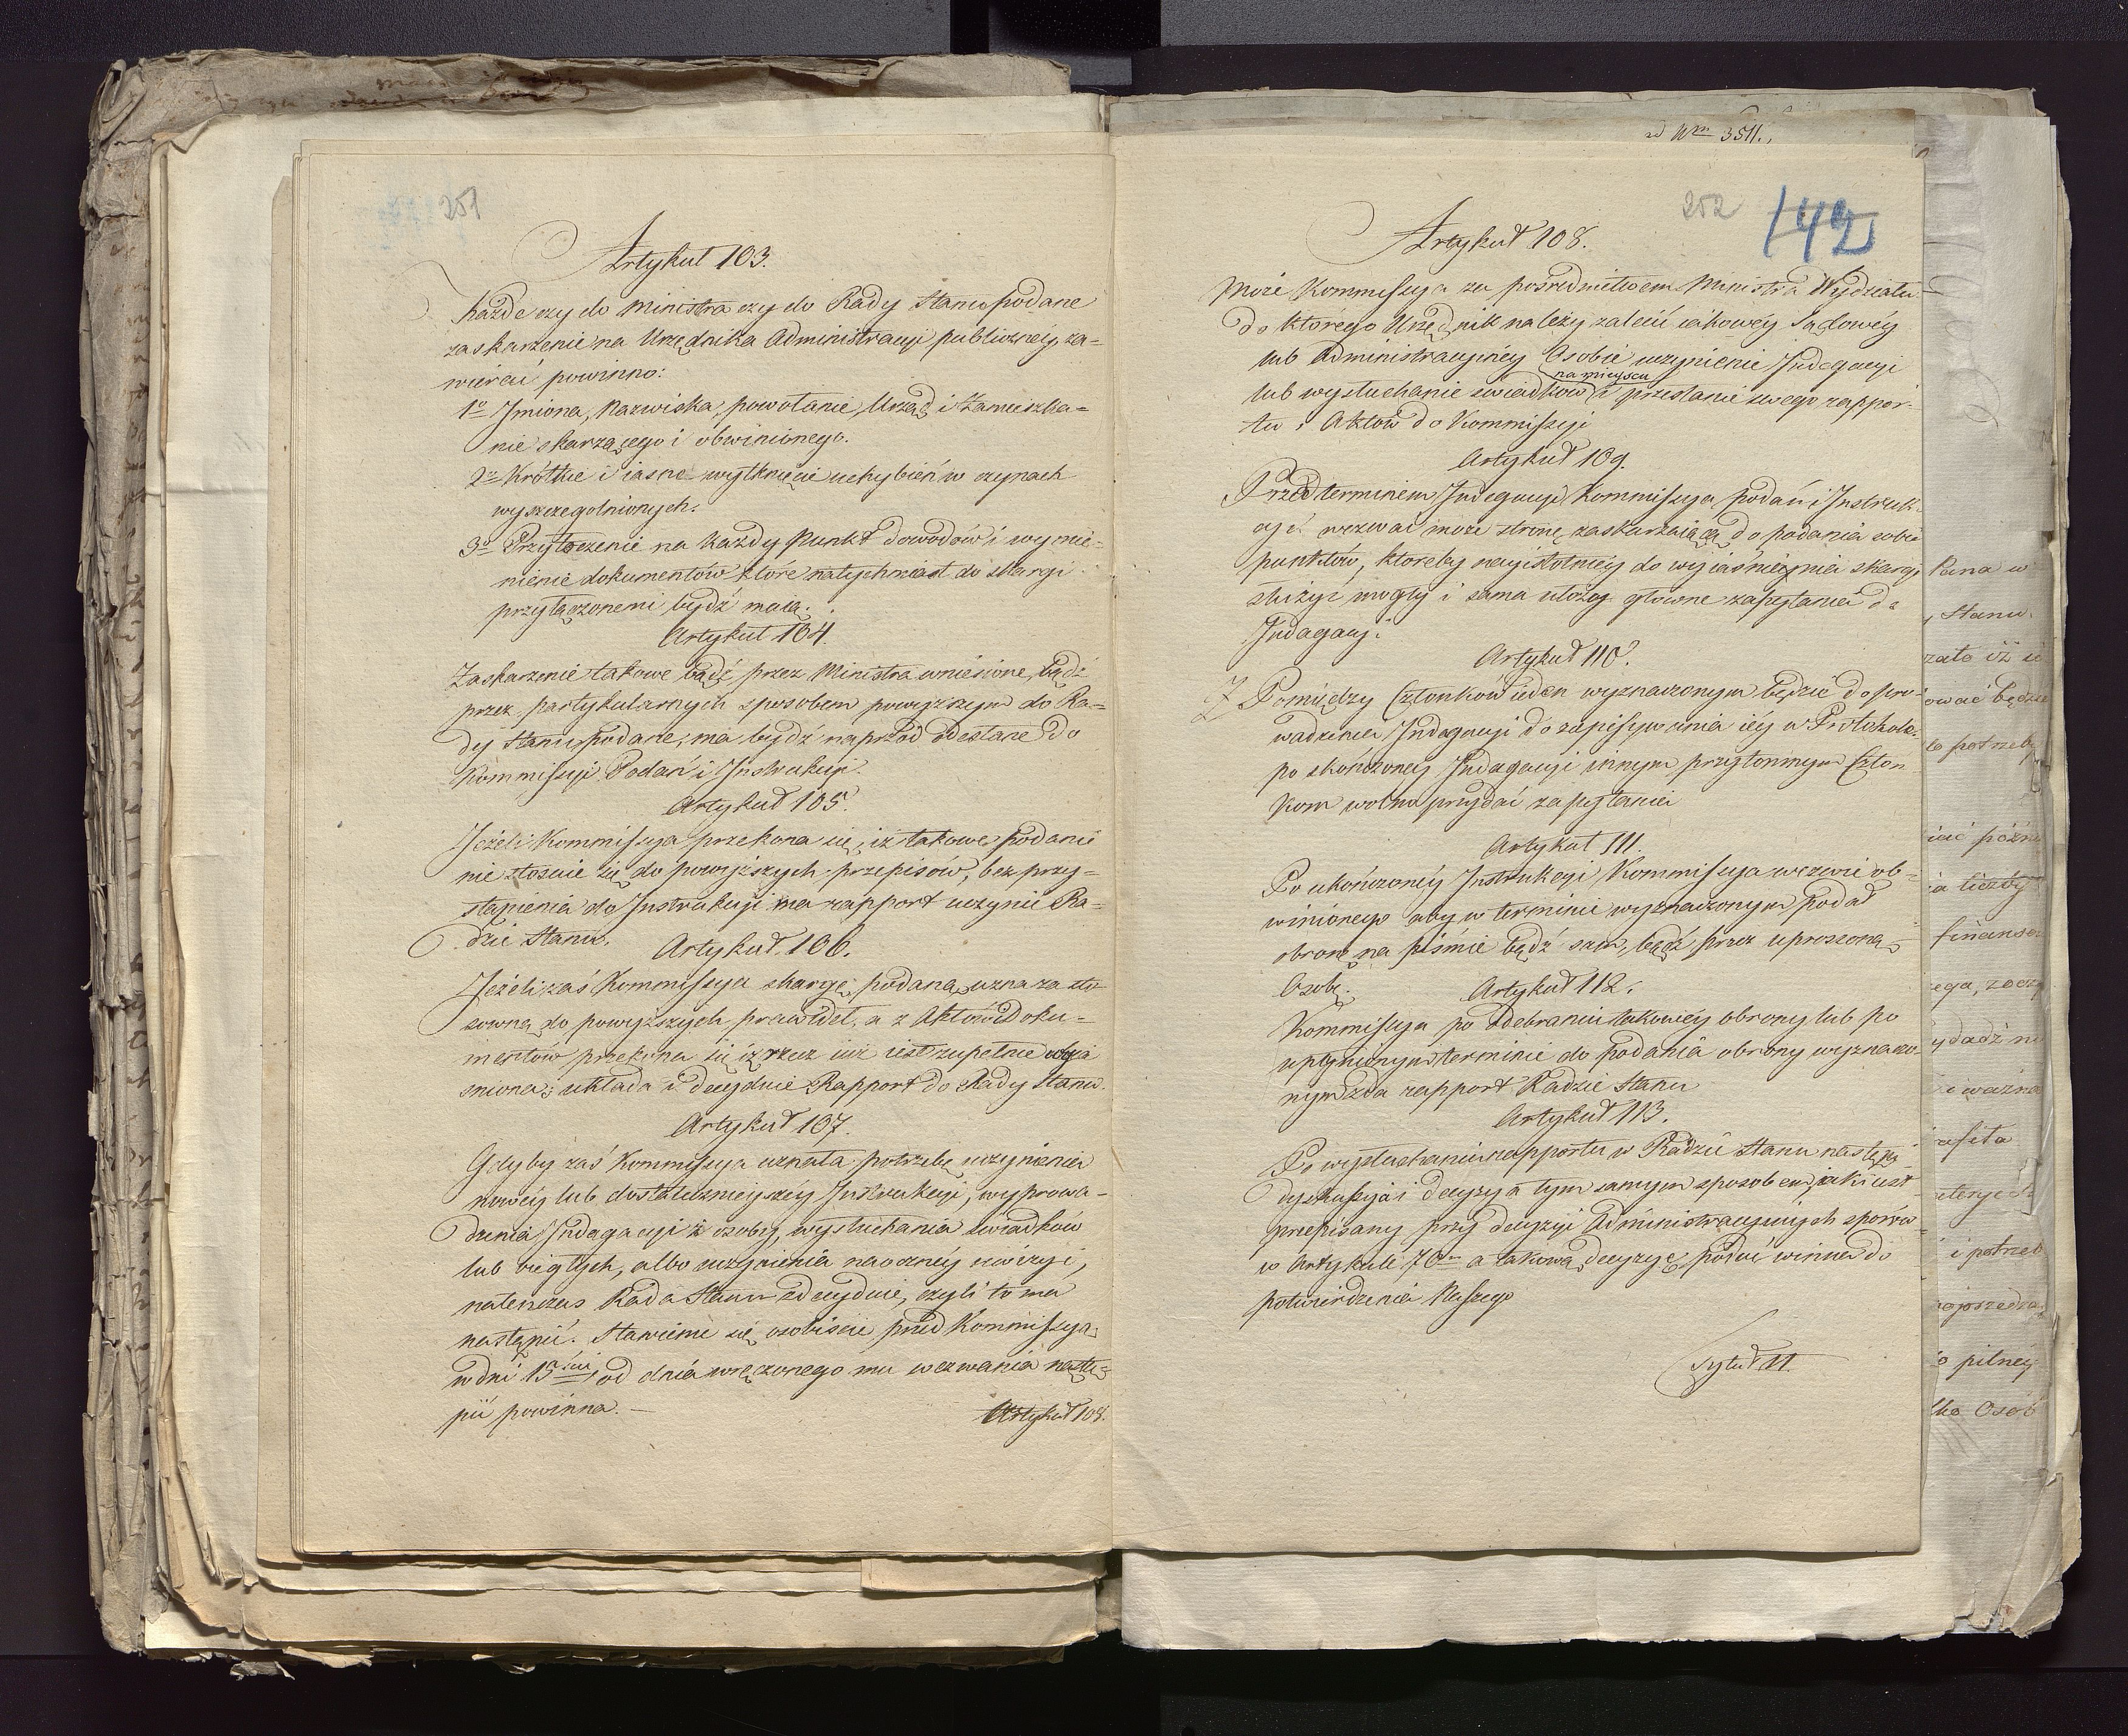 251
Artykuł 103.
Każde czy do Ministra czy do Rady Stanu podane
zaskarzenie na Urzędnika Administracyi publiczney, za=
wierać powinno:
1o Jmiona, Nazwiska, powołanie Urząd i Zamieszka=
nie skarzącego i obwinionego.
2o Krótkie i iasne wytknięcie uchybień w czynach
wyszczegolnionych.
3o Przytoczenie na każdy Punkt dowodów i wymie=
nienie dokumentów które natychmiast do skargi
przyłączonemi bydź maią.
Artykuł 104.
Zaskarzenie takowe bądź przez Ministra wniesione, bądź
przez partykularnych sposobem powyższym do Ra=
dy Stanu podane, ma bydź naprzód odesłane do
Kommissyi Podań i Instrukcyi.
Artykuł 105.
Jeżeli Kommissya przekona się, iż takowe podanie
nie stosuie się do powyższych przepisów, bez przy=
stąpienia do Instrukcyi ma rapport uczynić Ra=
dzie Stanu.
Artykuł 106.
Jeżeli zaś Kommissya skargę podaną uzna za sto=
sowną do powyższych prawideł, a z Aktów i Doku=
mentów przekona się iż rzecz iuż iest zupełnie wyja
sniona; układa i decyduie Rapport do Rady Stanu.
Artykuł 107.
Gdyby zaś Kommissya uznała potrzebę uczynienia
nowéy lub dostatecznieyszéy Instrukcyi, wyprowa=
dzenia Indagacyi z osoby, wysłuchania świadków
lub biegłych, albo uczynienia naocznéy rewizyi,
natenczas Rada Stanu zdecyduie, czyli to ma
nastąpić. Stawienie się osobiscie przed Kommissyą
w dni 15ściu od dnia wręczonego mu wezwania nastą=
pić powinno.—
Artykuł 108.
ad Nm 3511.
252
142
Artykuł 108.
Może Kommissya za pośrednictwem Ministra Wydziału
do którego Urzędnik należy zalecić iakowéy Sądowéy
lub Administracyinéy Osobie uczynienie Indagacyi
na mieyscu
lub wysłuchanie świadków i przesłanie swego rappor=
tu i Aktów do Kommissyi
Artykuł 109.
Przed terminem Indagacyi Kommissya podań i Instruk=
cyi wezwać może stronę zaskarzaiącą do podania sobie
punktów, któreby nayistotniey do wyiaśnienia skargi
służyć mogły i sama ułoży główne zapytania do
Indagacyi.
Artykuł 110.
Z Pomiędzy Członków ieden wyznaczonym będzie do pro=
wadzenia Indagacyi do zapisywania iéy w Protokole.
po skończonéy Indagacyi innym przytomnym Człon
kom wolno przydać zapytania
Artykuł 111.
Po ukończonéy Instrukcyi Kommissya wezwie ob=
winionego aby w terminie wyznaczonym podał
obronę na piśmie bądź sam, bądź przez uproszoną
Osobę.
Artykuł 112.
Kommissya po odebraniu takowéy obrony lub po
upłynionym terminie do podania obrony wyznaczo=
nym zda rapport Radzie Stanu
Artykuł 113.
Po wysłuchaniu rapportu w Radzie Stanu nastąpi
dyskussya i decyzya tym samym sposobem, jaki iest
przepisany przy decyzyi Administracyinych sporów
w Artykule 70m a takową decyzyę podać winna do
potwierdzenia Naszego
Tytuł 11.
Pana w
, Stanu.
zało iż i
ować będzie
to potrzeby
iać późn
ia liczby
finanso
ega, zacz
ydadź n
i ważna
assta
i potrzeb
o pilnéy
lko Osób